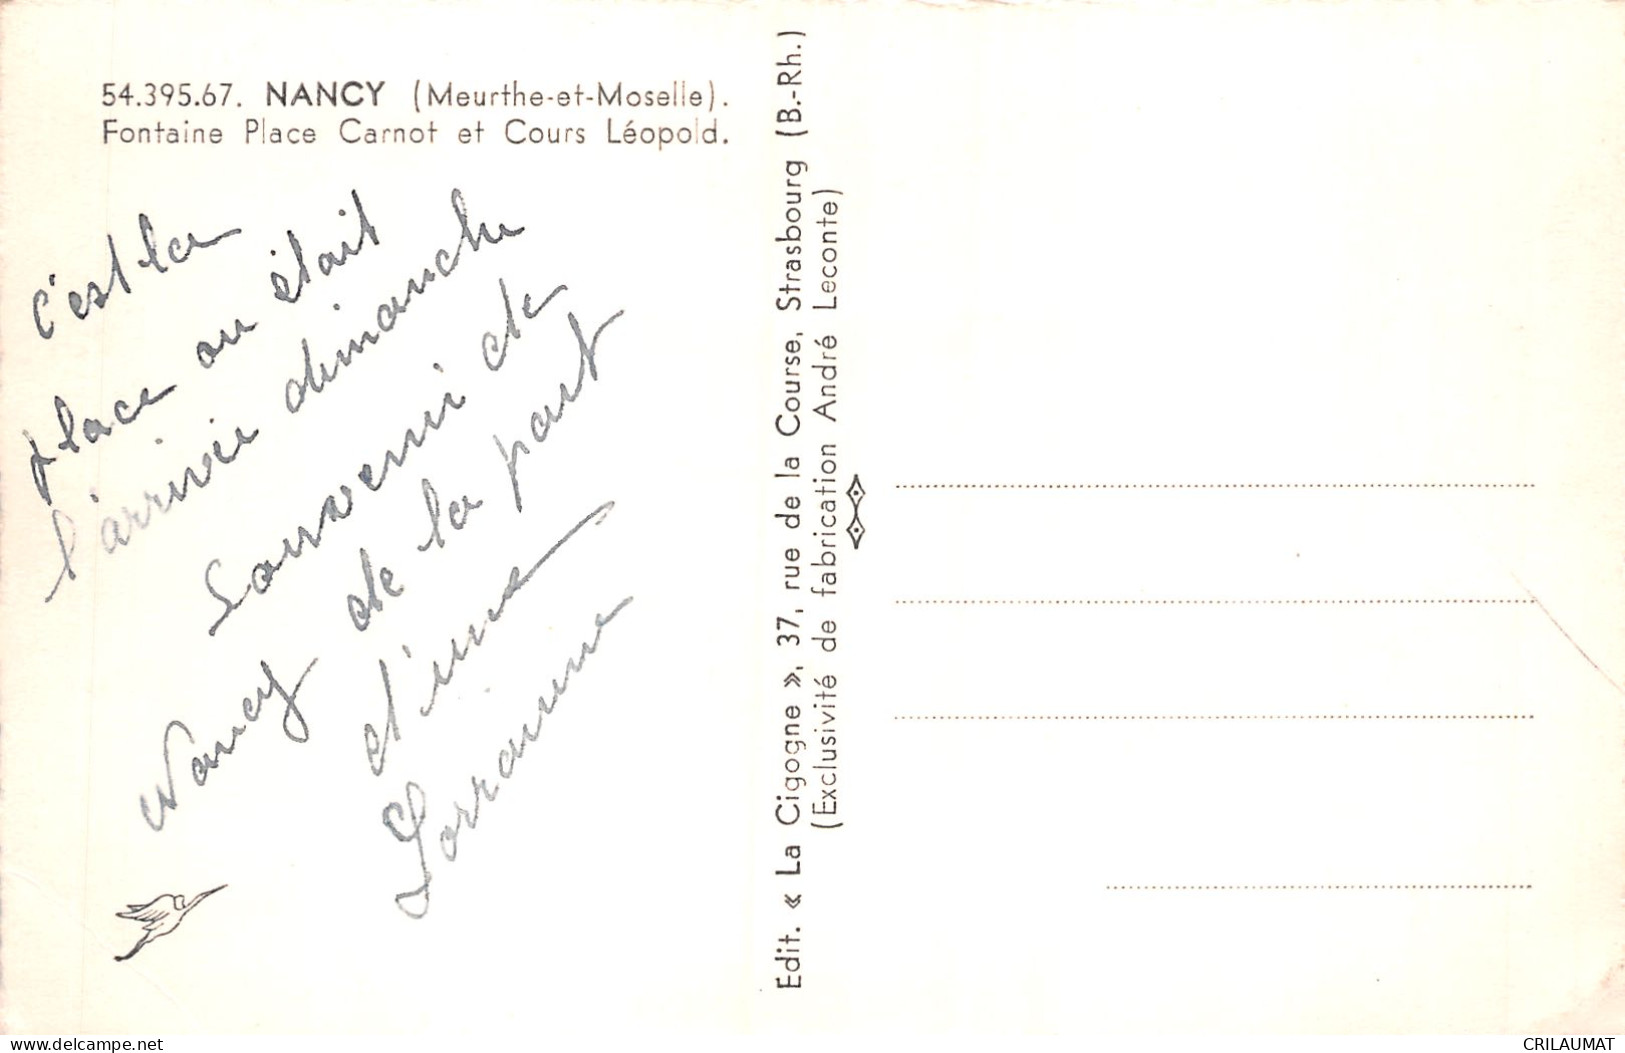 54.395.67. NANCY (Meurthe-et-Moselle).
Fontaine Place Carnot et Cours Léopold.
c'est la
place ou était
l'arrivée dimanche
Souvenir de
Nancy de la part
d'une
Lorraine
Edit. « La Cigogne », 37, rue de la Course, Strasbourg (B.-Rh.)
(Exclusivité de fabrication André Leconte)
www.delcampe.net
CRILAUMAT